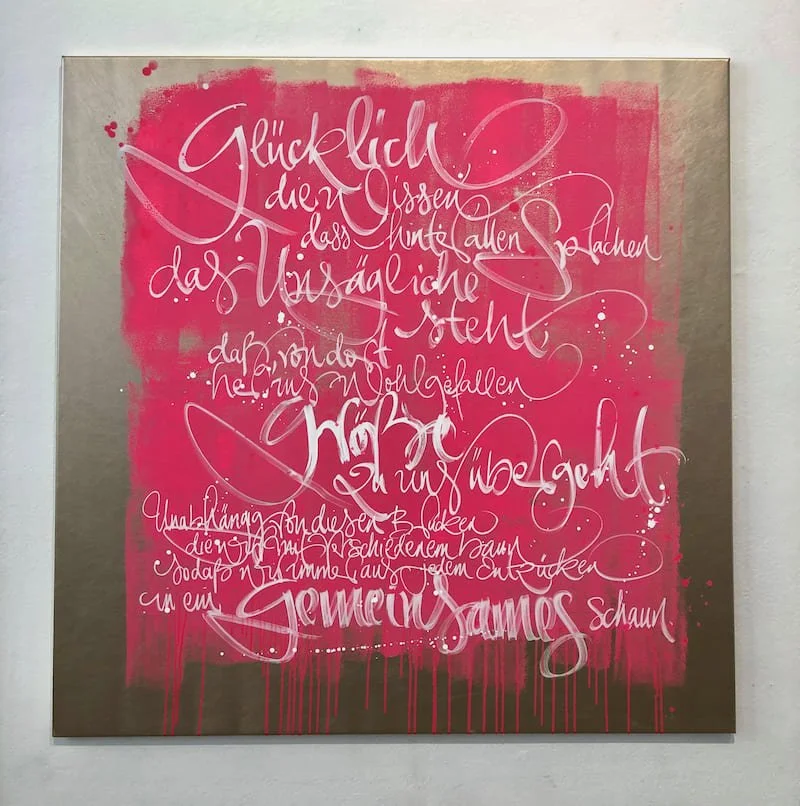 Glücklich
die wissen
dass hinter allen Sprachen
das Unsägliche
steht,
daß, von dort
her, ins Wohlgefallen
Größe
zu uns übergeht
Unabhängig von diesen Brücken
die wir mit Verschiedenem baun
sodaß wir immer, aus jedem Entzücken
in ein Gemeinsames schaun.